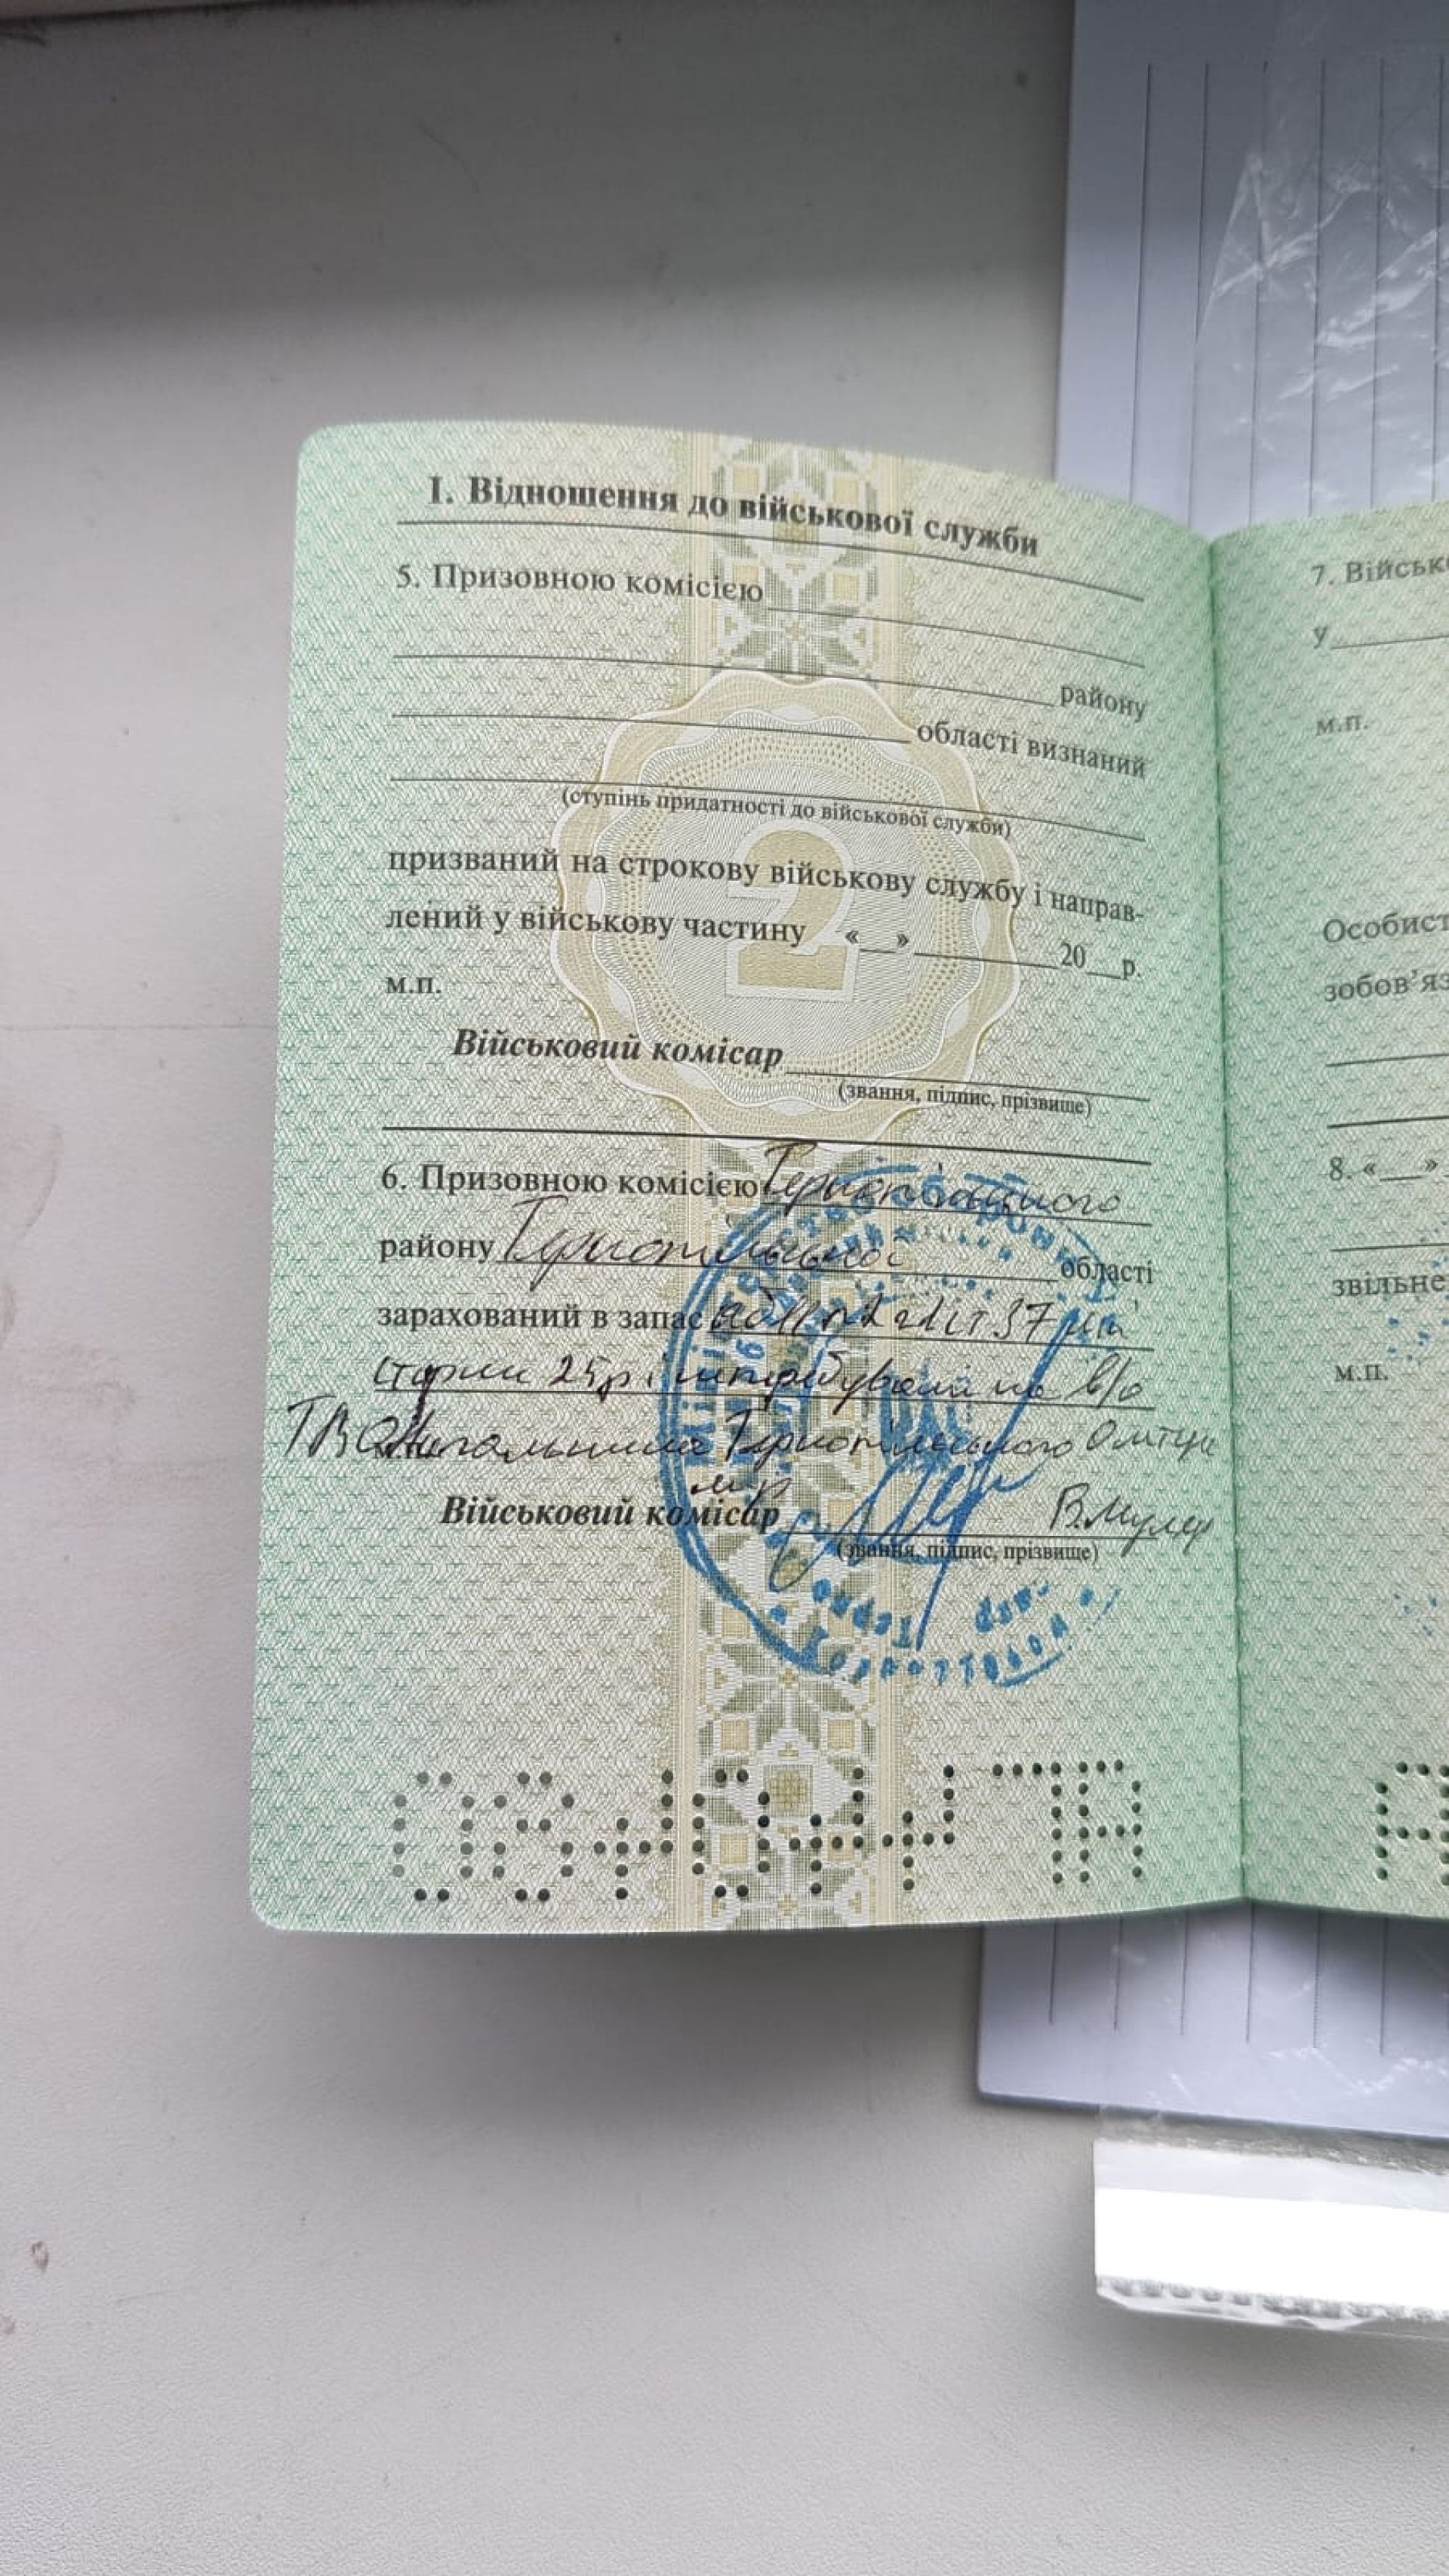 I. Відношення до військової служби
5. Призовною комісією
району
області визнаний
(ступінь придатності до військової служби)
призваний на строкову військову службу і направ-
лений у військову частину «__» ________ 20__р.
м.п.
Військовий комісар
(звання, підпис, прізвище)
6. Призовною комісією Тернопільського
району Тернопільської області
зарахований в запас 37
старши 25р і непребував на в/о
ТВО Начальника Тернопільського ОМТЦК
м-р
Військовий комісар В.Мулер
(звання, підпис, прізвище)
7. Військ
у
м.п.
Особист
зобов'яз
8. «__»
звільне
м.п.